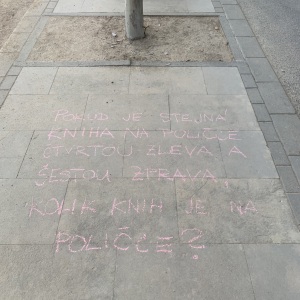 POKUD JE STEJNÁ
KNIHA NA POLIČCE
ČTVRTOU ZLEVA A
ŠESTOU ZPRAVA,
KOLIK KNIH JE NA
POLIČCE?